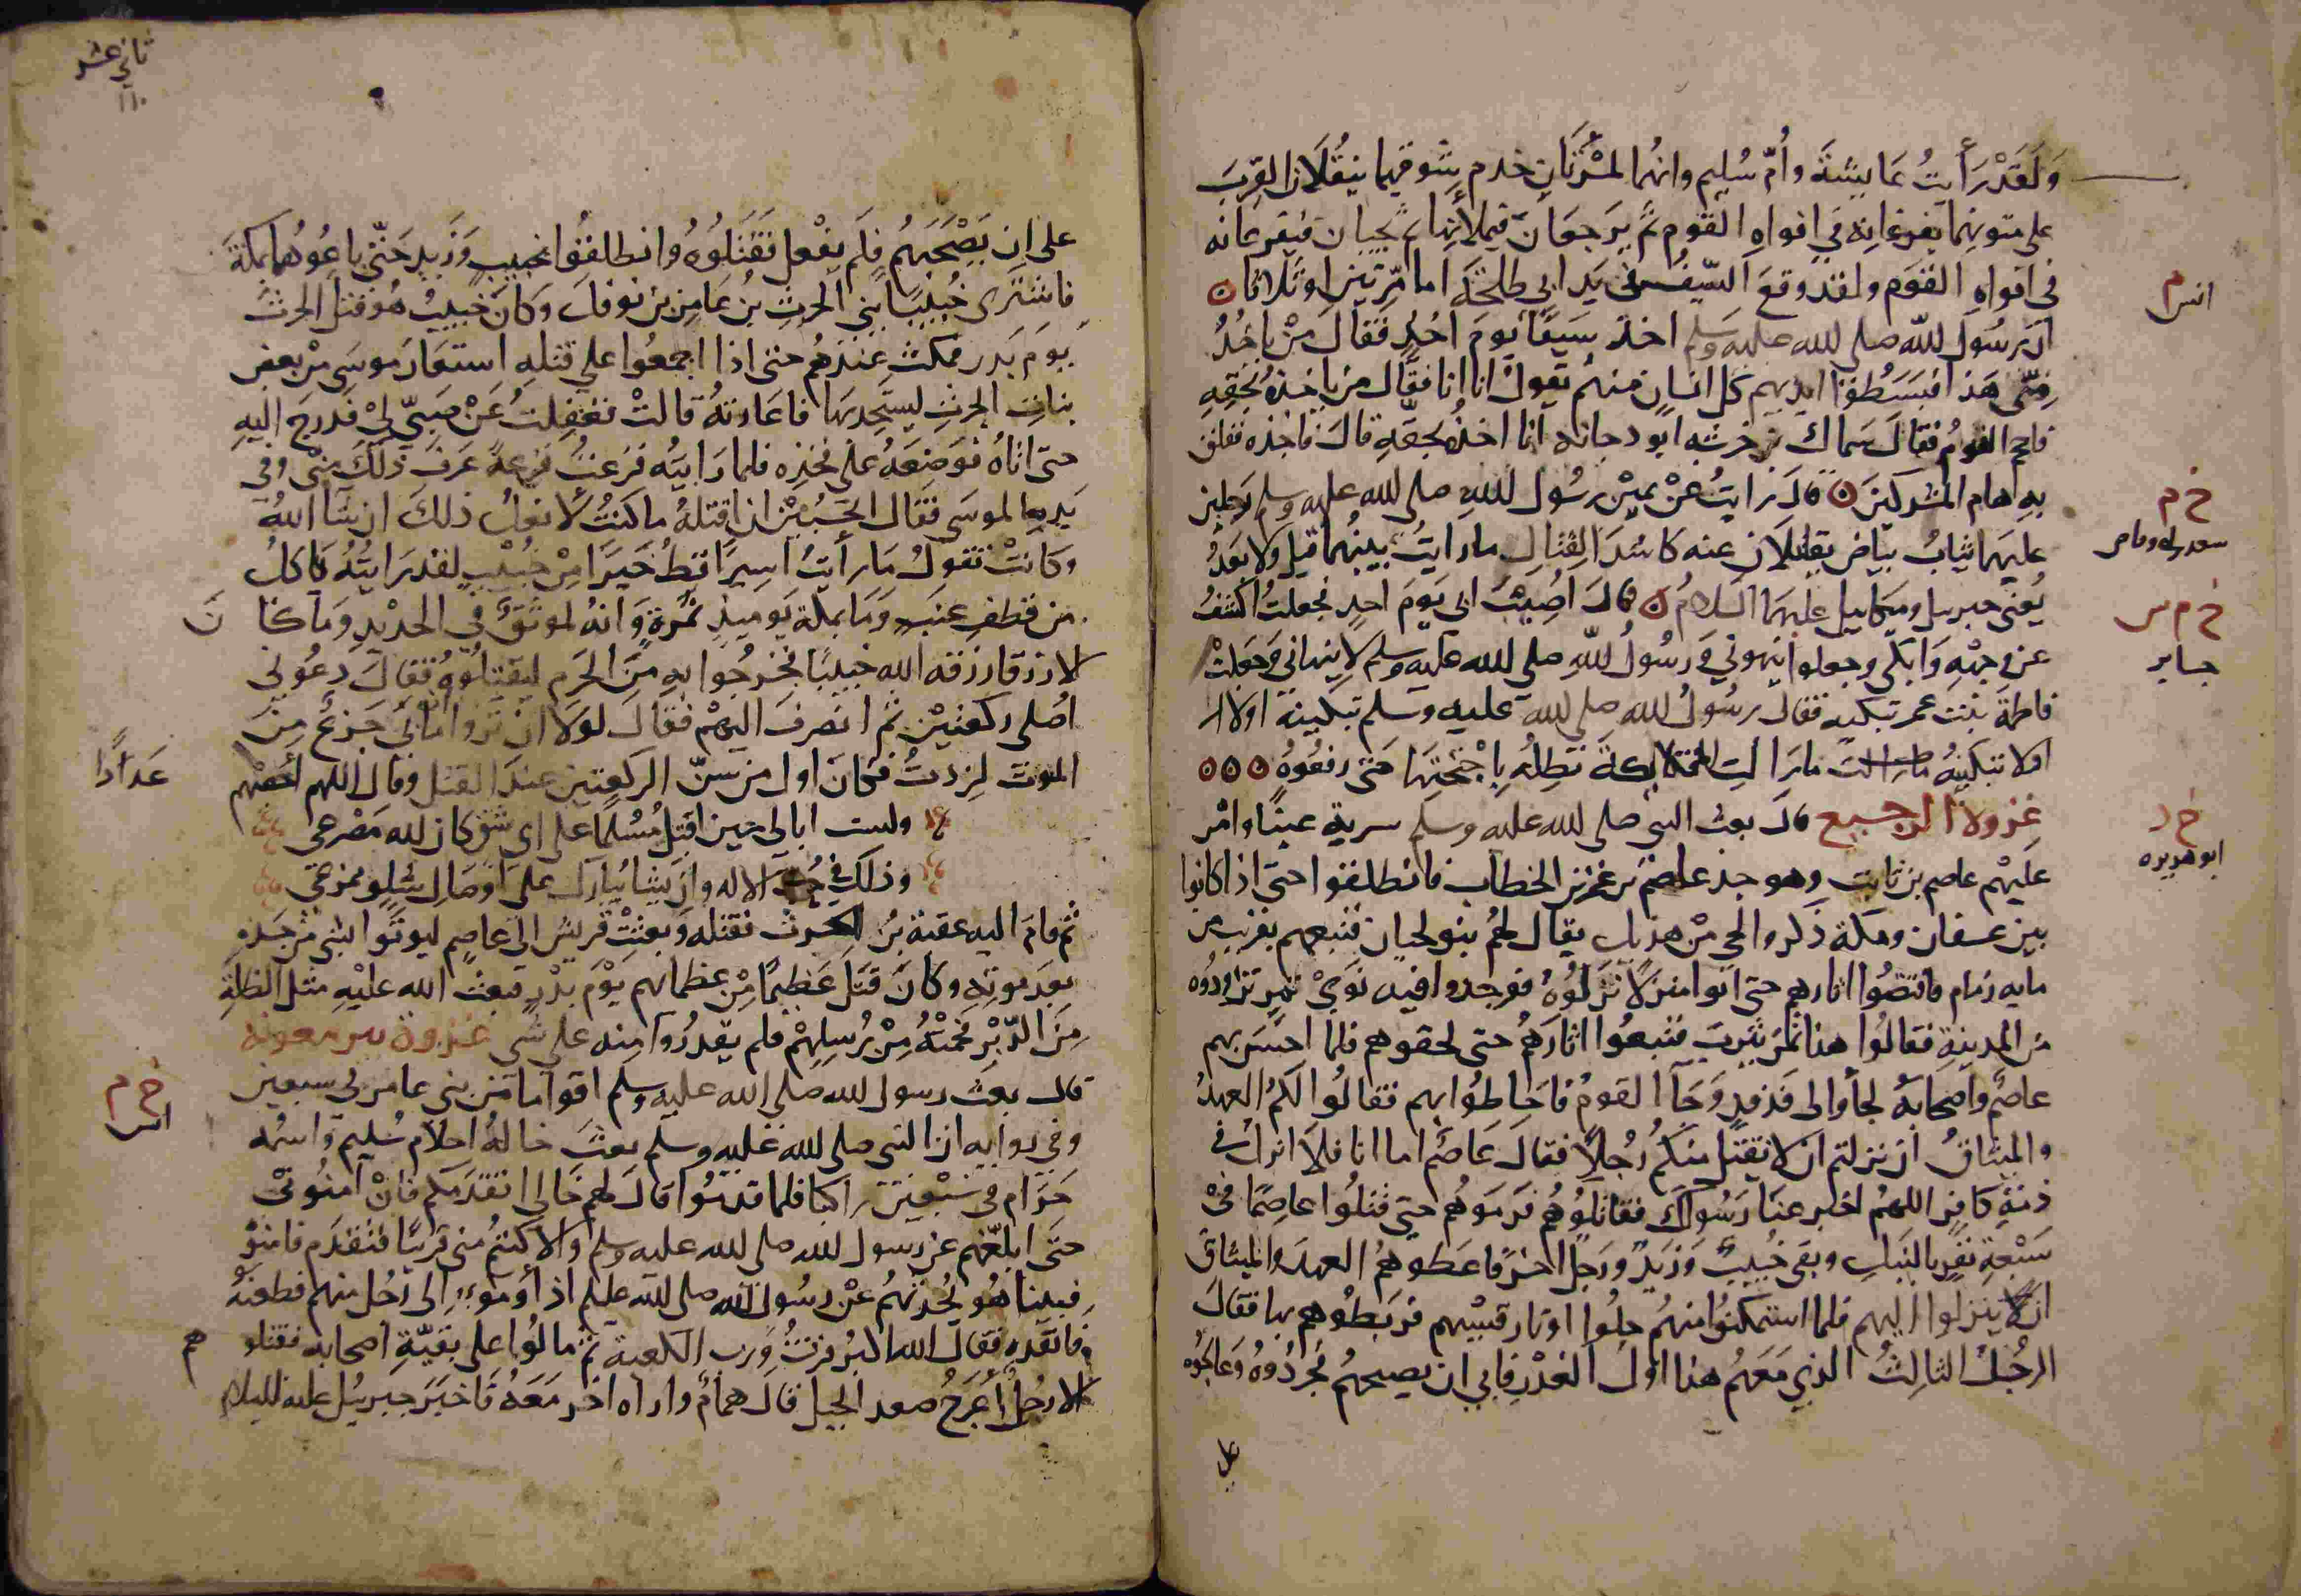 وَلَقَدْ رَأَيتُ عَايشةَ وأُمّ سُليم وانهُما لمشمِّرَتانِ خدم سُوقهِما ينقُلَان القِرَب
على متونهما يفرغانِه في افواهِ القوم ثم يَرجعَانَ فيملأنها ثم يجيان فيفرغانه
في افواهِ القوم ولقد وقعَ السّيفُ من يَد ابي طلحَةَ اما مرّتين اوثلاثا ه
م
انس
ان رسُولَ للهِ صلى لله عليه وسلم اخذ سَيفًا يومَ اُحُدٍ فقال مَنْ ياخُذُ
مِنّى هَذا فبَسَطُوا ايديهم كل انسانٍ منهم يقولُ انا انا فقال من ياخذه بحقهِ
فاحجم القومُ فقالَ سماك بن خرشه ابو دجانه انا اخذُه بحقّهِ قالَ فاخذه ففلق
بهِ هام المشركينَ ه قال رايتُ عنْ يمين رسُول للهِ صلى لله عليه وسلم رجلين
خ م
سعد بن ابى وقاص
عليهما ثيابُ بياض يقاتلان عنه كاشدّ القتالِ مارايتُ بينهُما قبل ولا بَعدُ
يُعنى جبريل وميكاييل عليهما السلامُ ه قال اُصيبَ ابى يومَ احدٍ فجعلتُ اكشفُ
خ م س
جابر
عن وجهِهِ وَابكى وجعلوا ينهوني وَرسُولُ للهِ صلى لله عليه وسلم لا ينهاني وَجعلتْ
فاطمةَ بنت عمر تبكيه فقال رسُولُ لله صلى لله عليه وسلم تبكينهُ اولا
لا تبكينهُ مازالت الملايكة تظلهُ باجنحتها حتى رفعُوهُ ه ه ه
غزوة الرجيع قال بعث النبى صلى لله عليه وسلم سرية عينًا وامّر
خ د
ابو هريره
عليْهم عاصم بن ثابتٍ وهو جد عاصم بن عمر بن الخطاب فانطلقوا حتى اذا كانوا
بين عسفان ومكة ذكروا لحي منْ هذيل يقال لهُم بنو لحيان فتبعهم بقريب من
مايه رام فاقتصُّوا اثارهم حتى اتوا منزلًا نزَلُوهُ فوجدوا فيه نَوى تمرٍ تزودُوه
مِن المدينةِ فقالُوا هذا تمر يثربَ فتبعُوا اثارَهُم حتى لحقوهم فلما احسَّ بهم
عاصمٌ واصحابهُ لجأوا الى فَدفدٍ وَجَآ القومُ فاحَاطُوا بهم فقالُوا لكمُ العهدُ
والميثاقُ ان نزلتم ان لا نقتل منكم رُجلًا فقالَ عَاصم اما انا فلا انزلُ في
ذمّةِ كَافرٍ اللهُم اخبر عنَا رَسُولك فقاتلُوهُم فرَموَهُم حتى قتلُوا عاصمًا في
سَبْعةِ نفرٍ بالنبلِ وبقى خُبيبٌ وَزيدٌ ورَجلٌ اخرُ فاعطوهمُ العهدَ والميثاقَ
ان ينزلوا اليهم فلما استمكنُوا منهُم حلُوا اوتار قسيّهم فربَطُوهم بها فقالَ
الرجُلُ الثالِثُ الذي مَعَهُم هذا اول الغدْرِ فابي ان يصحبهُم فجرّرُوهُ وَعالجُوه
على
ثاني عشر
١١٠
على ان يَصْحَبَهُم فلم يفعل فقتلوُهُ وانطلقُوا بخبيبٍ وَزيدٍ حَتّى باعُوهُما بمكةَ
فاشترى خُبيبًا بني الحرث بنُ عَامر بن نوفلَ وَكانَ خبيبُ هُوَ قتل الحرثَ
يَومَ بَدرٍ فمكثَ عندَهُم حتى اذا اجمعُوا على قتلِهِ استعَارَ موسَى منْ بعض
بناتِ الحرثِ ليستحِد بهَا فاعَارتهُ قالتْ فغفلتُ عَنْ صبيّ لىْ فدرجَ اليهِ
حتى اتاهُ فوَضعَهُ على فخذِه فلما رَايتُه فزعتُ فزعةً عَرفَ ذلكَ منّى وفي
يَدِهِ الموسى فقال اتحسبينَ ان اقتلهُ ما كنتُ لافعلُ ذلكَ ان شآ اللهُ
وكانتْ تقولُ مَا رأيتُ اسيرًا قطُ خيَرًا مِنْ خُبيْبٍ لقد رَايتُهُ يَاكلُ
من قطفِ عنبٍ وَمَا بمكة يَوميذٍ ثمرةٌ وَانهُ لموثقٌ في الحديْدِ وَما كانَ
الا رزقا رزقه الله خبيبًا فخرجُوا بهِ منَ الحَرم ليقتلوهُ فقالَ دعُوني
اُصلى ركعتيْن ثم انصرفَ اليهمْ فقالَ لوَلا ان تروا ان مابي جَزعُ مِنَ
الموت لزدتُ فكانَ اول من سنّ الركعتين عند القتل وقال اللهم احصهم
عَددًا
ولست ابالى حين اقتل مُسْلما على اى شق كان لله مَصْرعى
وذلك في ذات الاله وان يشا يُبارك على اوصَال شلوٍ ممزعى
ثم قامَ اليه عقبة بنُ الحرث فقتله وَبعثتْ قريشٌ الى عاصمٍ ليوتَوا بشئ من جَسَدهِ
بعدَ موتِهِ وكانَ قتَلَ عَظيمًا مِنْ عظمايهم يوْمَ بدْرٍ فبعث الله عليْهِ مثل الظلةِ
مِنَ الدّبْر فحمتْهُ مِنْ رُسِلهِمْ فلم يقدرُوا منه على شَى غزوة بير معونة
قال بعثَ رسول لله صلى الله عليه وسلم اقواما من بني عامر فى سبعين
خ م
انس
وفي روايه ان النبى صلى لله عليه وسلم بعثَ خالهُ اخا لام سُليم واسمه
حَرام في سَبْعين راكبا فلما قدمُوا قالَ لهم خَالى اتقدمكم فانْ امّنُونى
حتى ابلغهم عن رسول لله صلى لله عليه وسلم والا كنتمُ منى قريبًا فتقدم فامنوُه
فبينا هُو يُحدثهُم عنْ رسُول الله صلى لله عليه وسلم اذ أومؤا الى رجُل منهم فطعنهُ
فانفذه فقالَ الله اكبرُ فزتُ وَرب الكعبة ثم مالُوا على بقيّةِ اصحابه فقتلوهم
الا رجُلٌ أعرجُ صعد الجبل قالَ همامٌ واراه اخر مَعَهُ فَاخبَرَ جبريُل عليه السلام